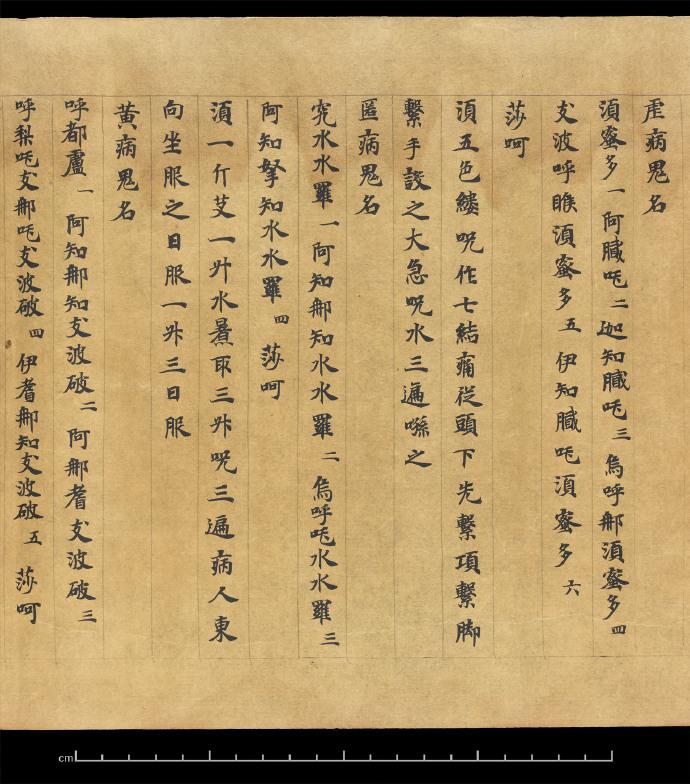 疟病鬼名
須蜜多一阿臈吒二迦知臈吒三烏呼那須蜜多四
支波呼睺須蜜多五伊知臈吒須蜜多六
莎呵
須五色縷呪作七結痛從頭下先繫項繫脚
繫手誜之大急呪水三遍噀之
匿病鬼名
究水水羅一阿知那知水水羅二烏呼吒水水羅三
阿知拏知水水羅四莎呵
須一斤艾一升水煮取三升呪三遍病人東
向坐服之日服一升三日服
黄病鬼名
呼都盧一阿知那知支波破二阿那耆支波破三
呼梨吒支那吒支波破四伊耆那知支波破五莎呵
cm